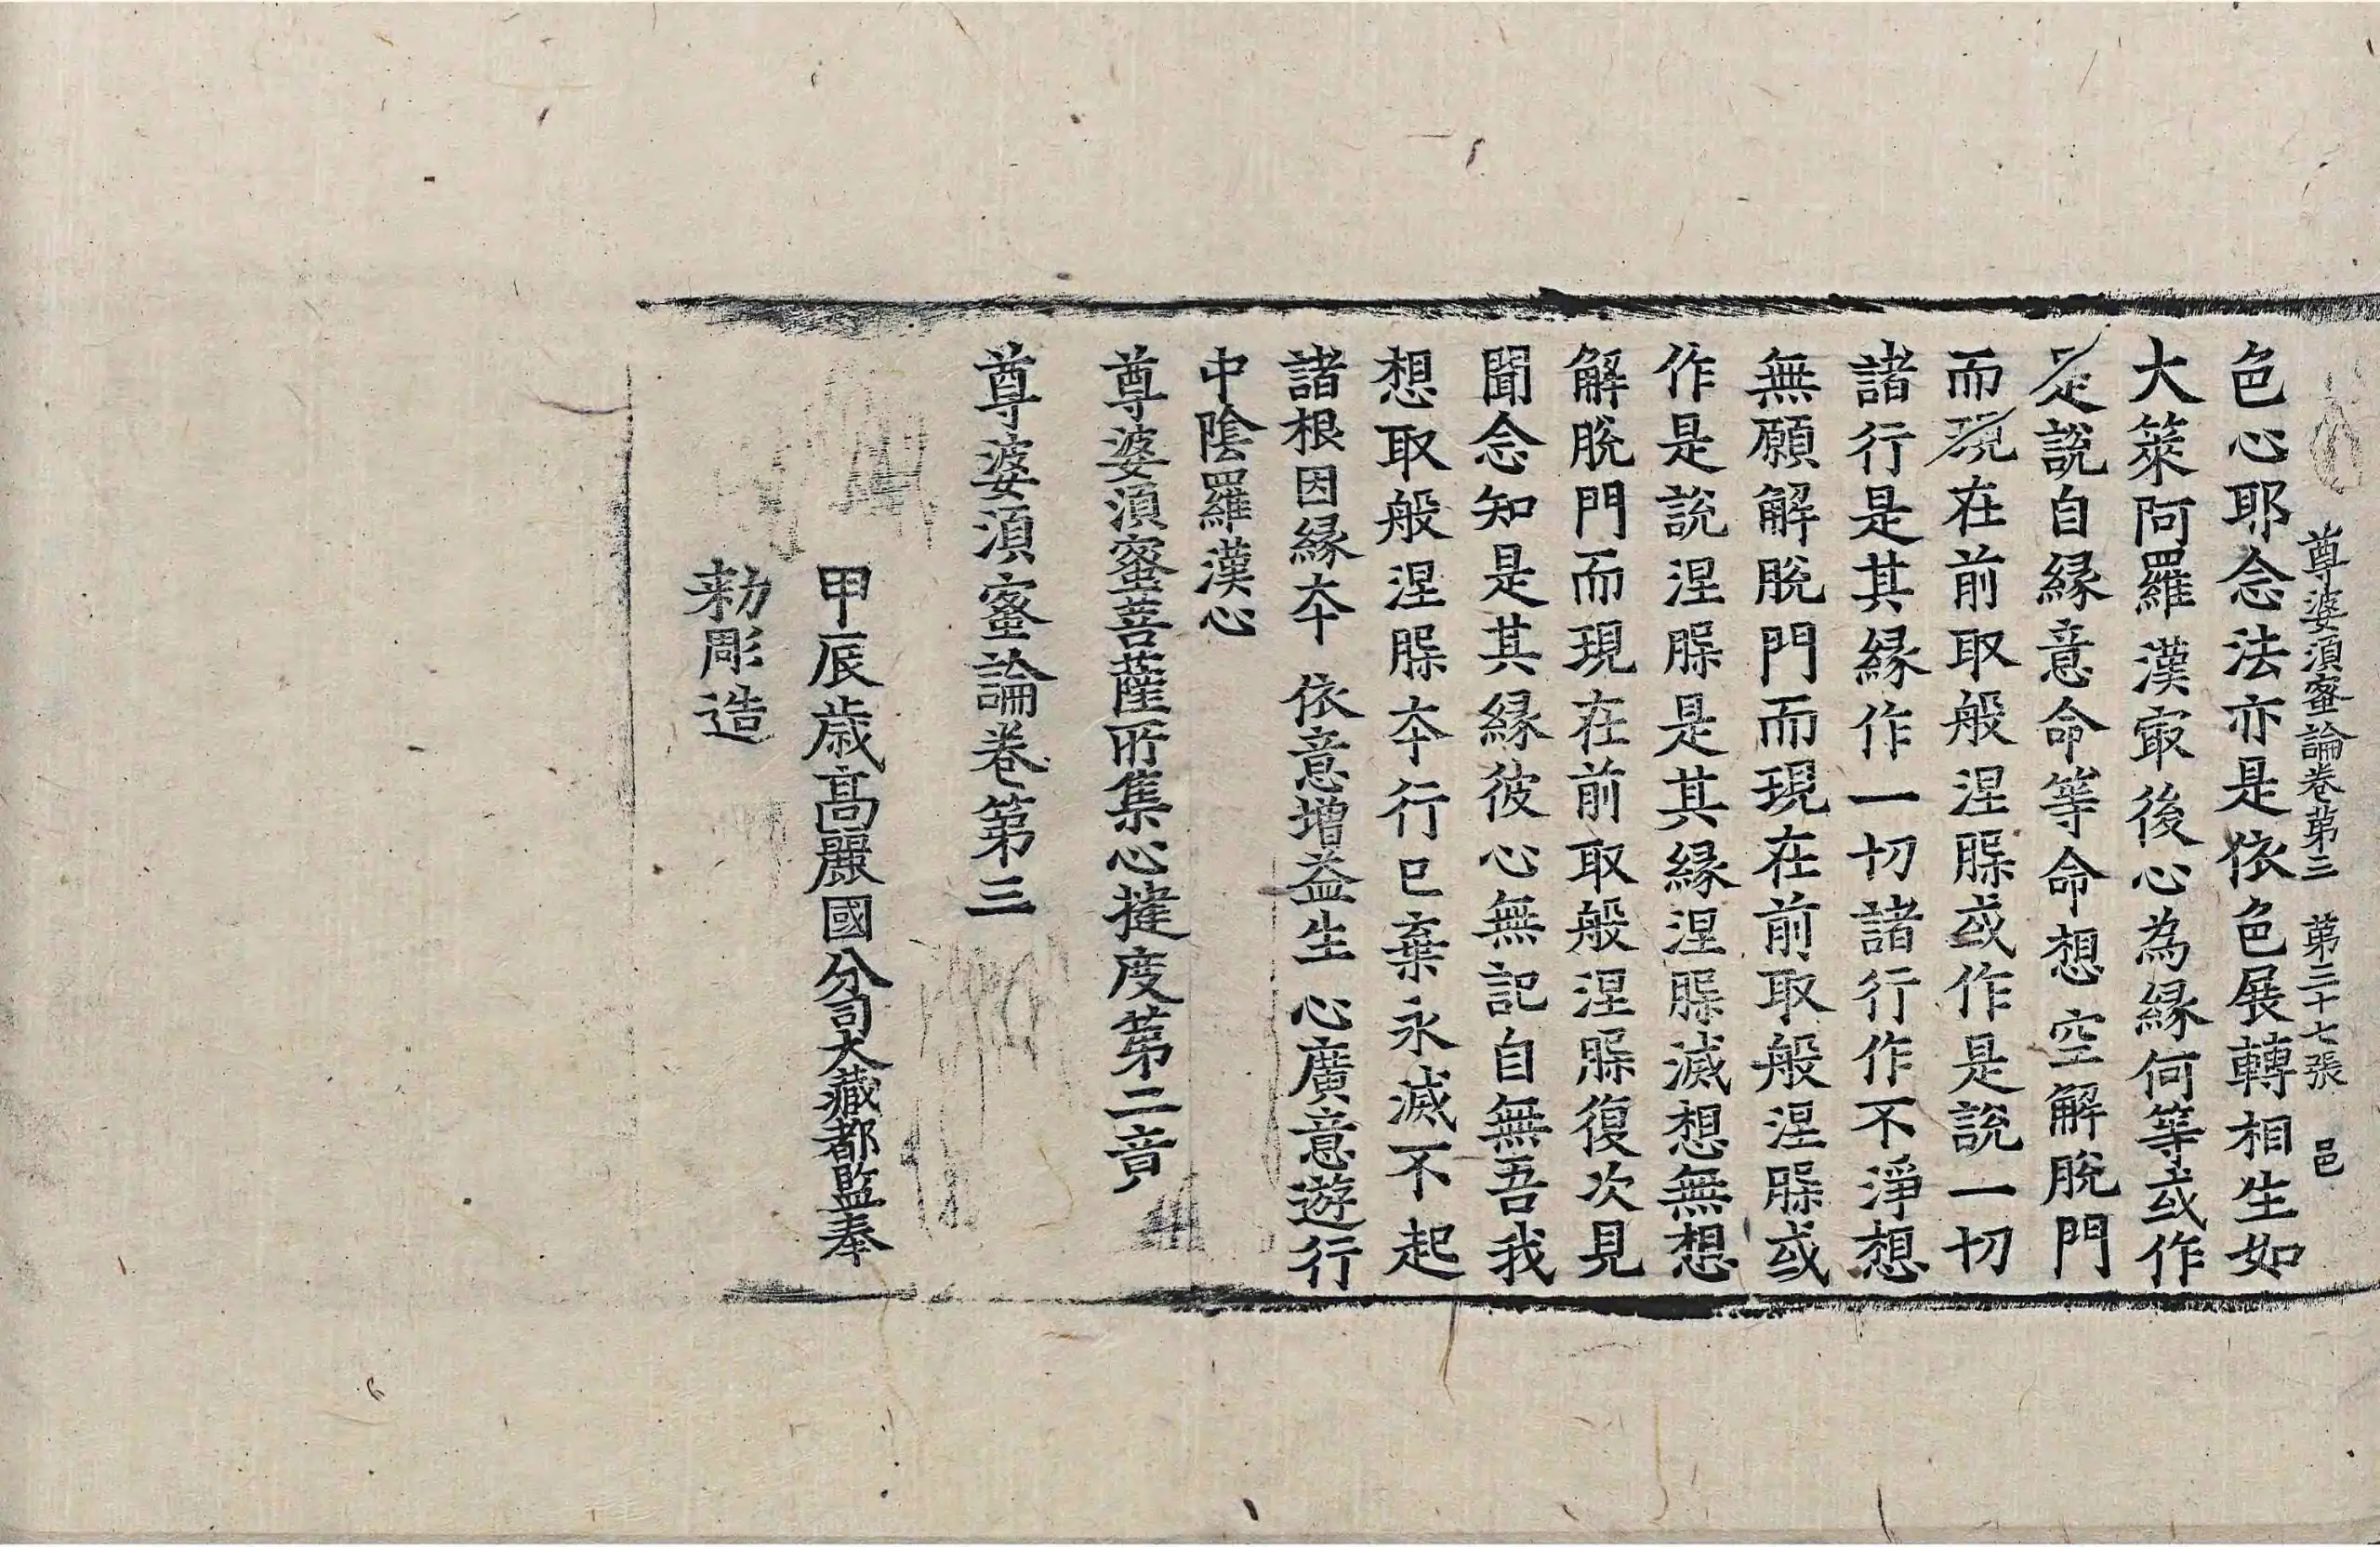 尊婆須蜜論卷第三 第三十七張 邑
色心耶念法亦是依色展轉相生如
大䇿阿羅漢㝡後心為縁何等或作
是說自縁意命等命想空解脫門
而現在前取般涅槃或作是說一切
諸行是其縁作一切諸行作不淨想
無願解脫門而現在前取般涅槃或
作是說涅槃是其縁涅槃滅想無想
解脫門而現在前取般涅槃復次見
聞念知是其縁彼心無記自無吾我
想取般涅槃夲行已棄永滅不起
諸根因縁夲 依意增益生 心廣意遊行
中陰羅漢心
尊婆須蜜菩薩所集心揵度第二竟
尊婆須蜜論卷第三
甲辰歲高麗國分司大藏都監奉
勑彫造